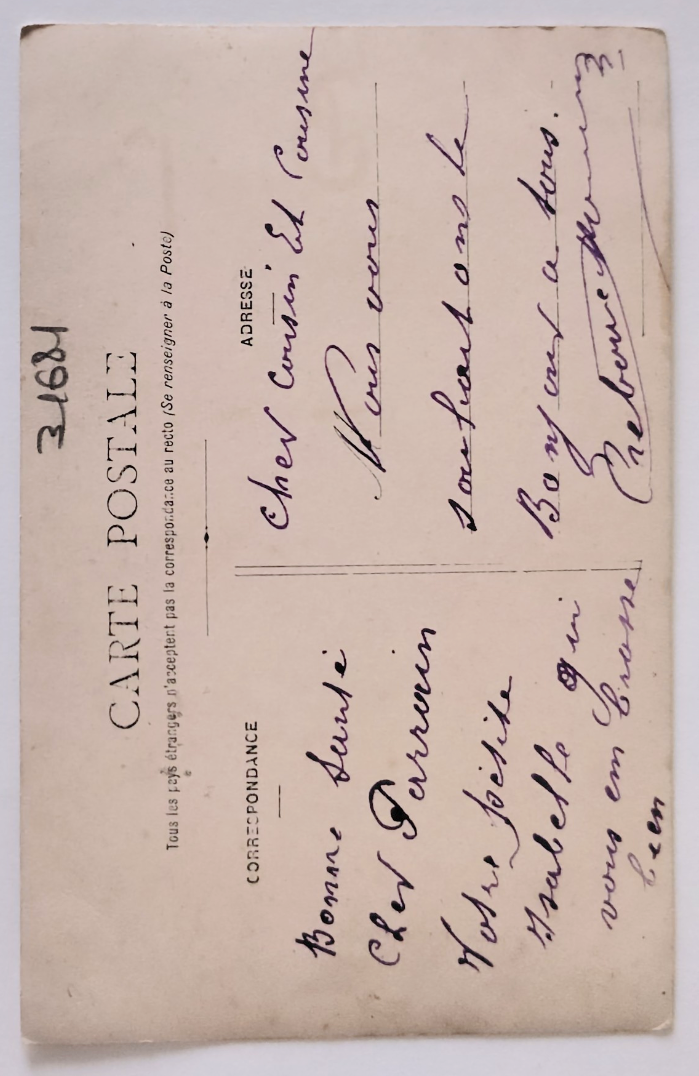 31681
CARTE POSTALE
Tous les pays étrangers n'acceptent pas la correspondance au recto (Se renseigner à la Poste)
CORRESPONDANCE
Bonne Santé
Cher Parrain
Votre petite
Isabelle qui
vous em brasse
bien
ADRESSE
Cher Cousin Et Cousine
Nous vous
souhaitons le
Bonjour a tous.